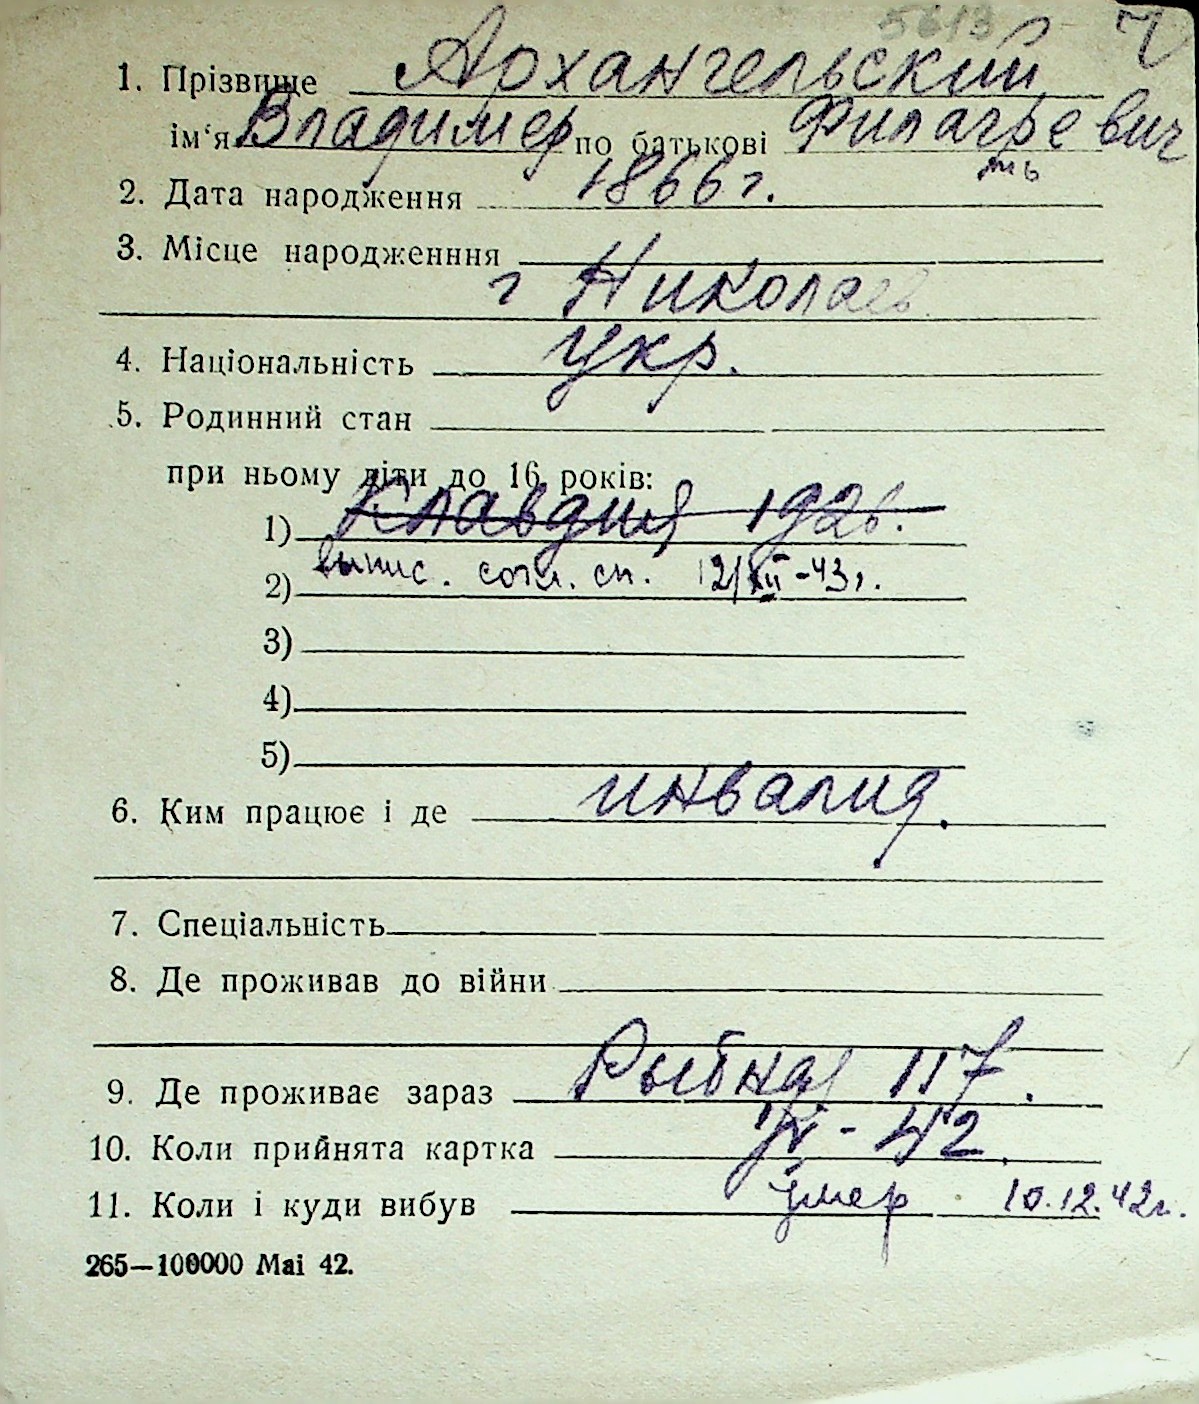 5613
1. Прізвище Архангельский
ім‘я Владимер по батькові Филагреевич
2. Дата народження 1866 г.
3. Місце народженння
г Николаев
4. Національність Укр.
5. Родинний стан
при ньому діти до 16 років:
1) Клавдия 1926.
2) выпис. согл. сп. 12/XII-43г.
3)
4)
5)
6. Ким працює і де инвалид.
7. Спеціальність
8. Де проживав до війни
9. Де проживає зараз Рыбная 117.
10. Коли прийнята картка - 42.
11. Коли і куди вибув умер 10.12.42г.
265—100000 Маі 42.